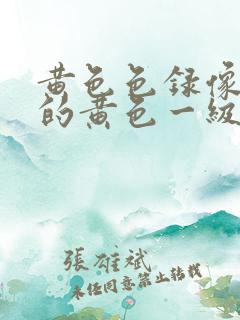 黄色色録像
的黄色一級
張雄斌
未经同意禁止转载